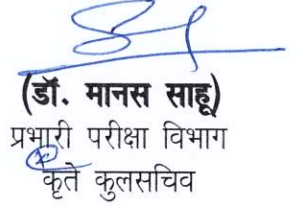 (डॉ. मानस साहू)
प्रभारी परीक्षा विभाग
कृते कुलसचिव